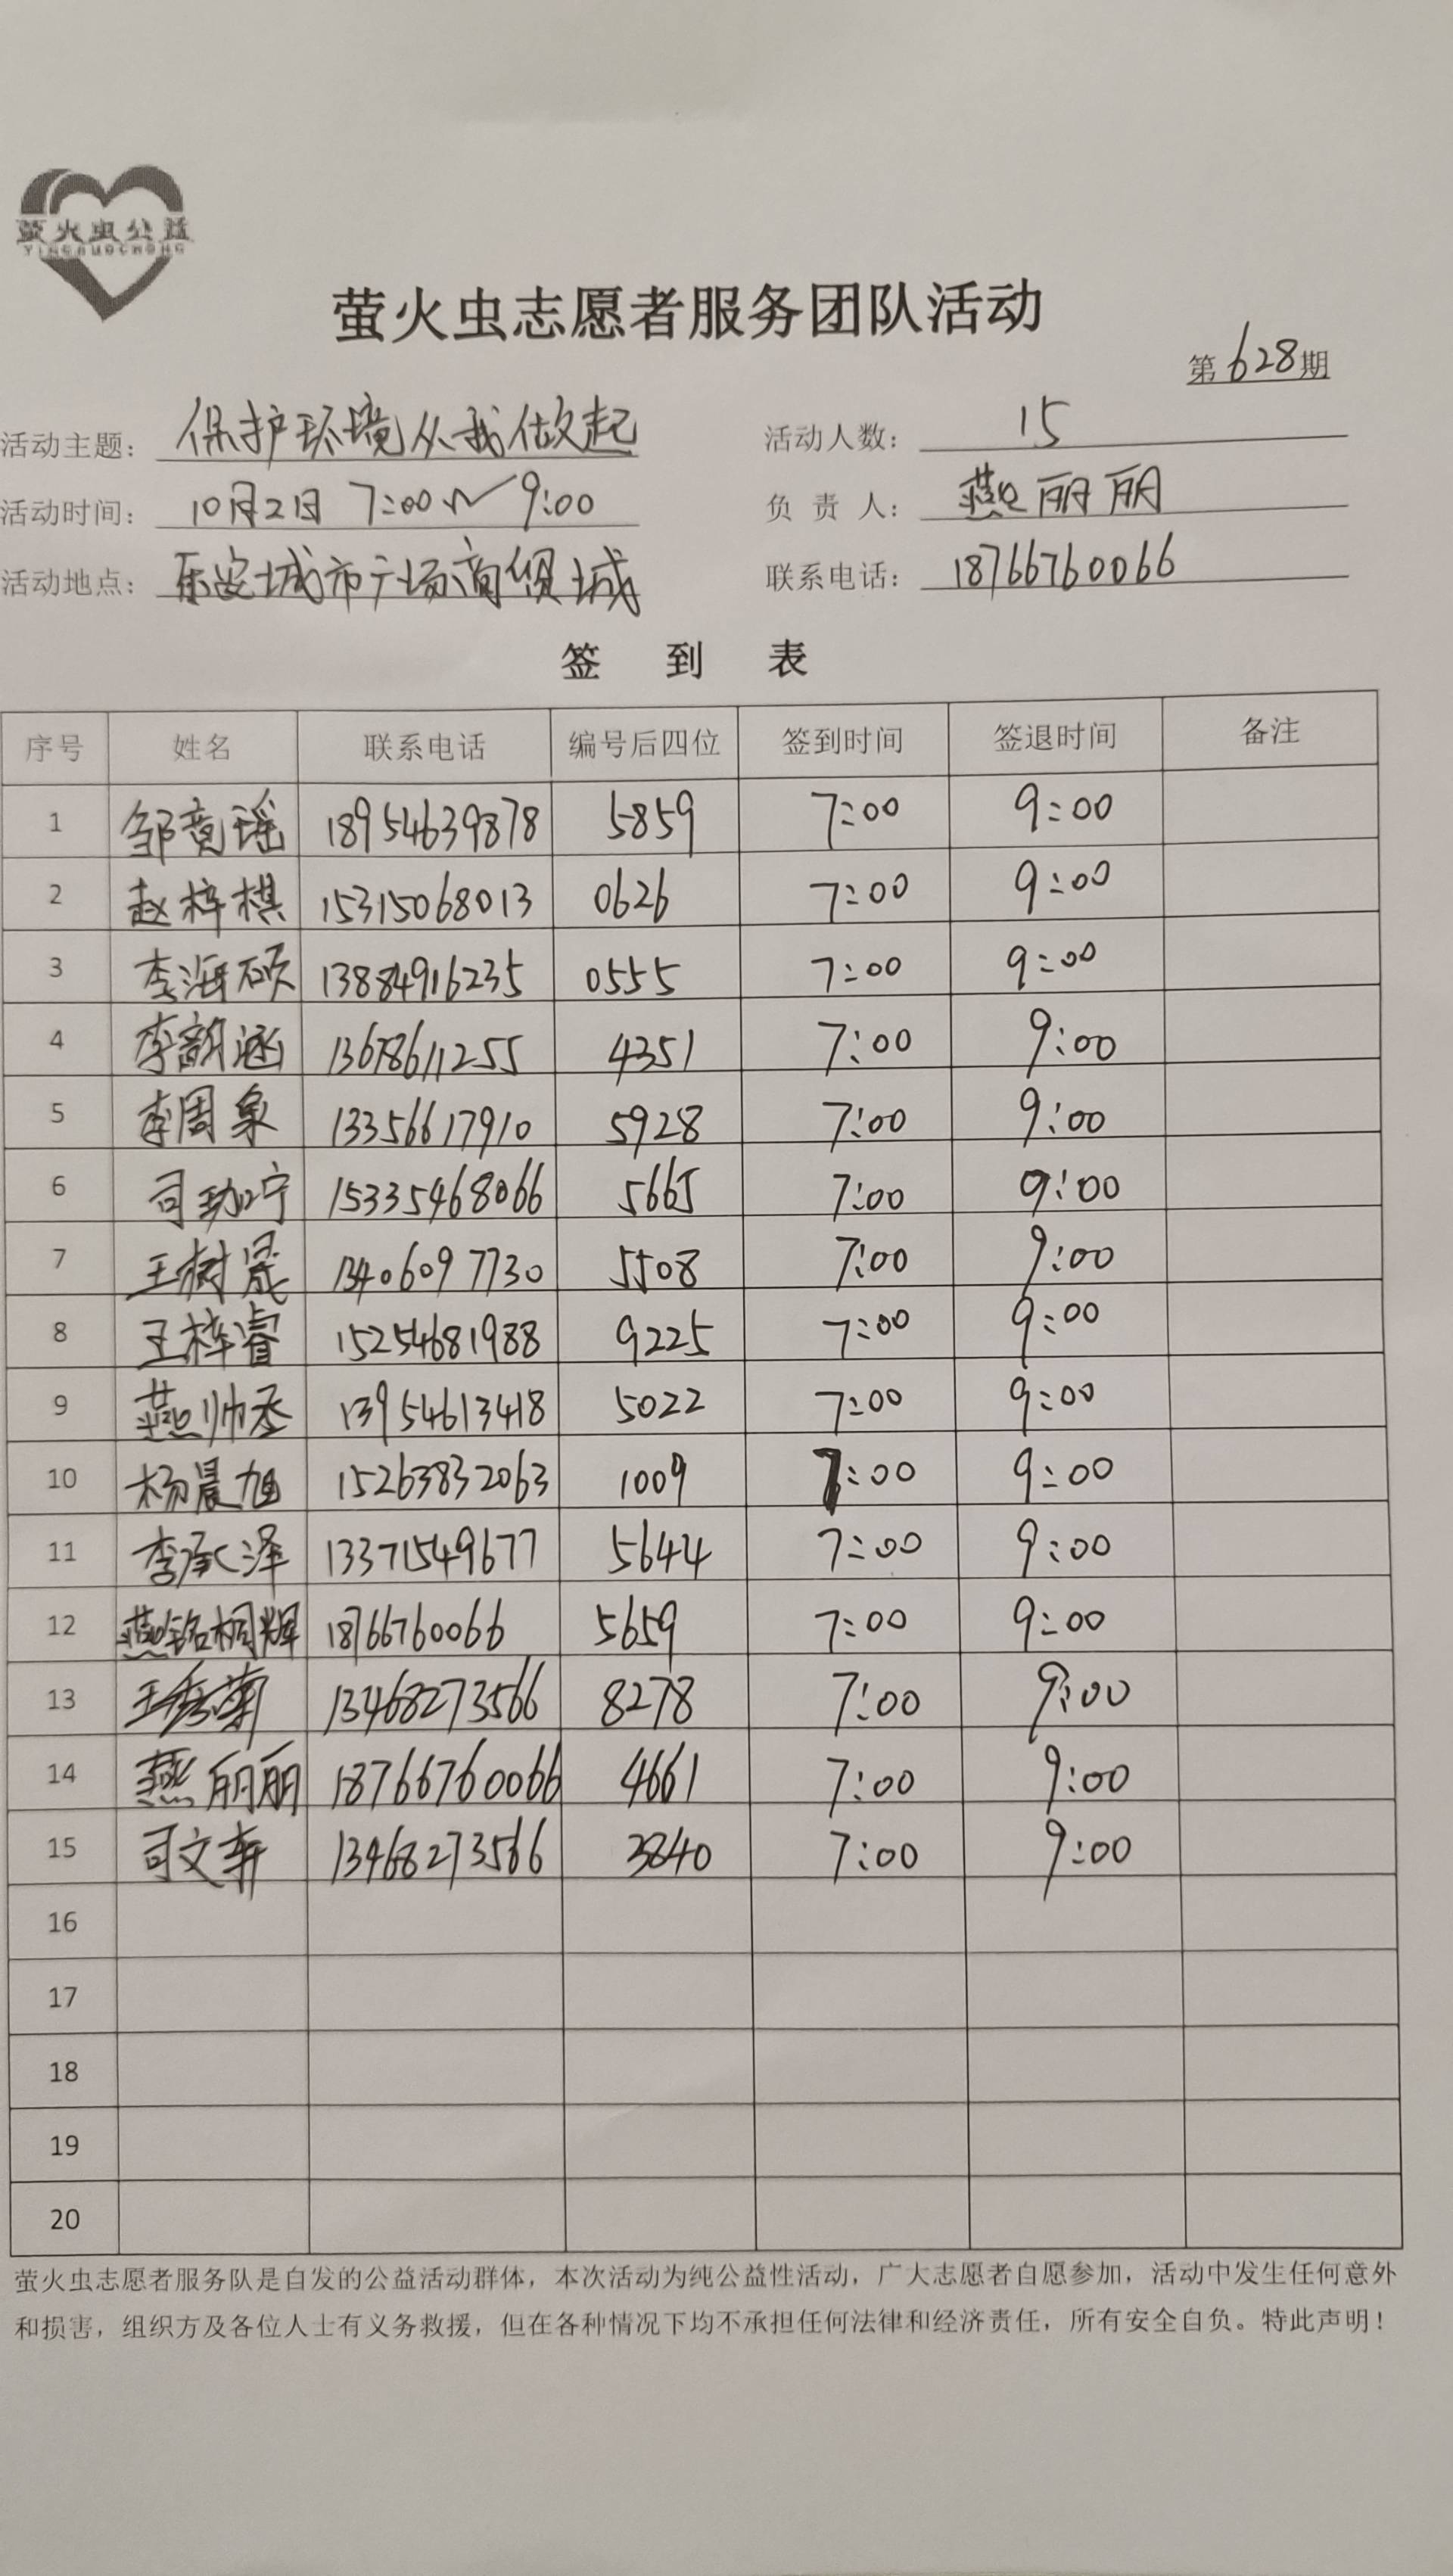 萤火虫公益
YINGHUOCHONG
萤火虫志愿者服务团队活动
第628期
活动主题: 保护环境从我做起 活动人数: 15
活动时间: 10月2日 7:00~9:00 负责人: 燕丽丽
活动地点: 乐安城市广场商贸城 联系电话: 18766760066
签到表
序号 姓名 联系电话 编号后四位 签到时间 签退时间 备注
1 邹竟瑶 18954639878 5859 7:00 9:00
2 赵梓棋 15315068013 0626 7:00 9:00
3 李海硕 13884916235 0555 7:00 9:00
4 李韵涵 13678611255 4351 7:00 9:00
5 李周泉 13356617910 5928 7:00 9:00
6 司 宁 15335468066 5665 7:00 9:00
7 王树晟 13406097730 5508 7:00 9:00
8 王梓睿 15254681988 9225 7:00 9:00
9 燕帅丞 13954613418 5022 7:00 9:00
10 杨晨旭 15263832063 1009 7:00 9:00
11 李承泽 13371549677 5644 7:00 9:00
12 燕铭桐辉 18766760066 5659 7:00 9:00
13 王秀菊 13468273566 8278 7:00 9:00
14 燕丽丽 18766760066 4661 7:00 9:00
15 司文轩 13468273566 3840 7:00 9:00
16
17
18
19
20
萤火虫志愿者服务队是自发的公益活动群体，本次活动为纯公益性活动，广大志愿者自愿参加，活动中发生任何意外
和损害，组织方及各位人士有义务救援，但在各种情况下均不承担任何法律和经济责任，所有安全自负。特此声明！